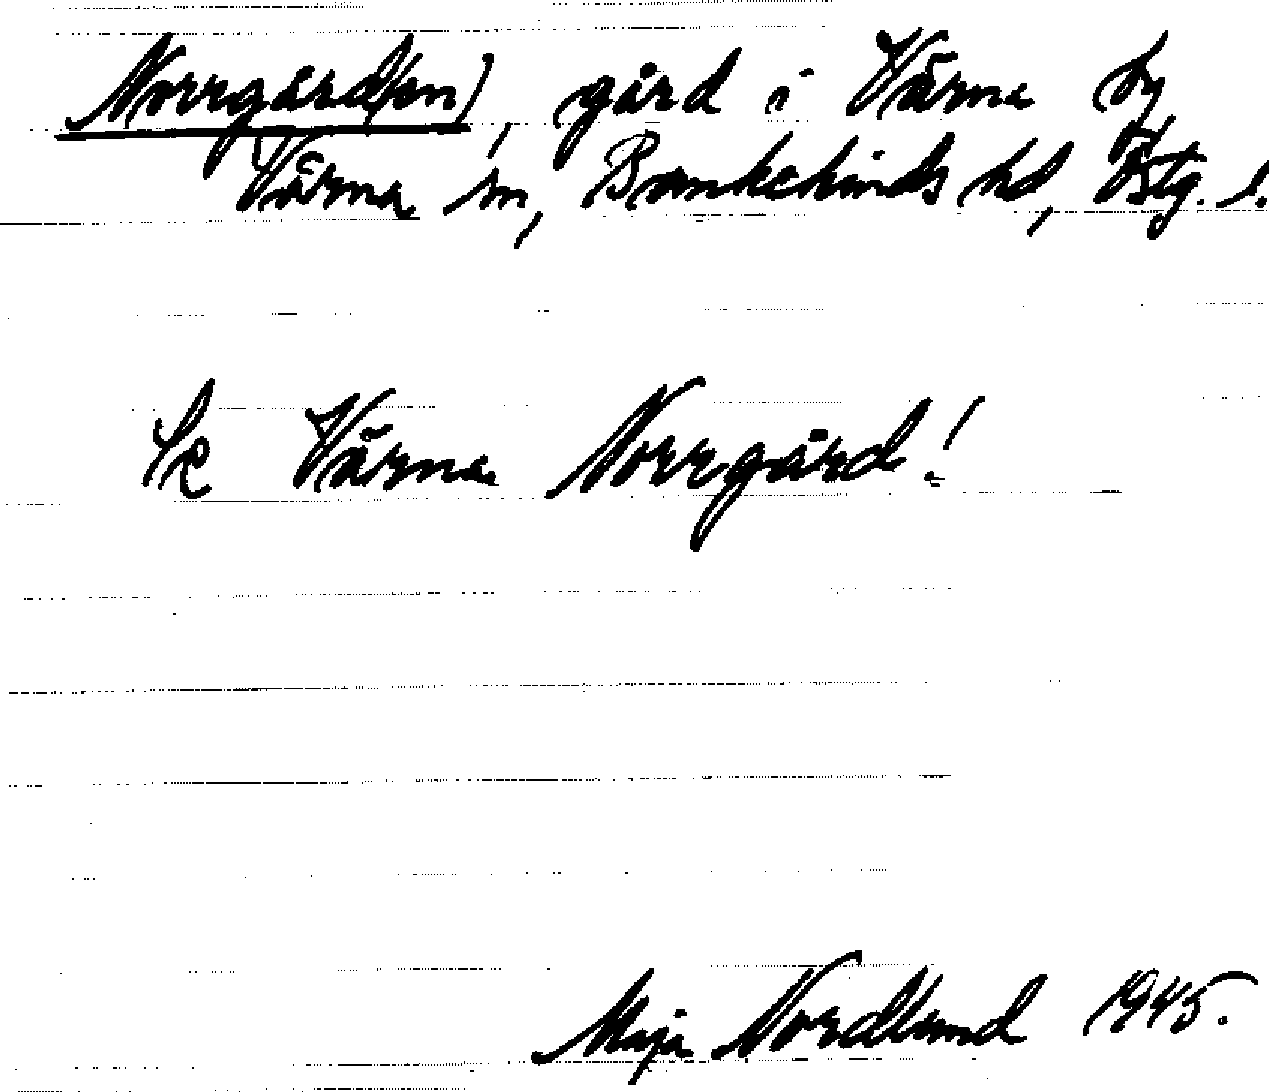 Norrgård(en), gård i Vårna by
Vårna sn, Bankekinds hd, Östg. l.
Se Vårna Norrgård!
Maja Nordlund 1945.